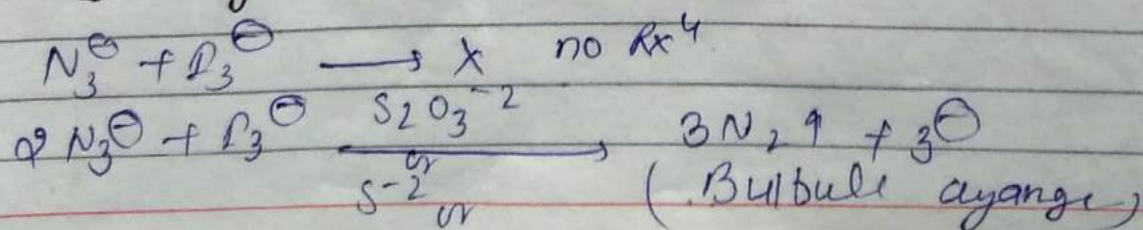 N₃⊖ + I₃⊖ ⟶ X no Rxⁿ
2 N₃⊖ + I₃⊖ ⟶ 3N₂↑ + 3⊖
S₂O₃⁻²
or
S⁻² or
(Bulbule ayange)